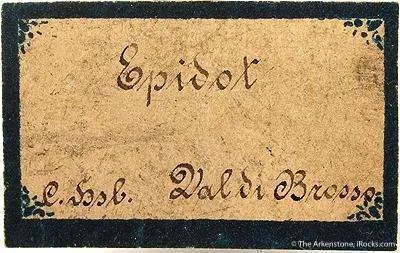 Epidot
C. Hsb. Val di Brosso
© The Arkenstone, iRocks.com